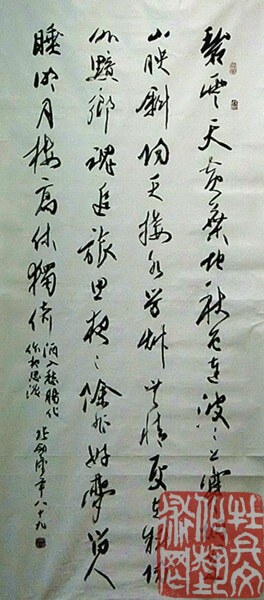 碧雲天黄葉地秋色連波〻上寒烟翠
山映斜陽天接水芳草無情更在斜陽
外黯鄉魂追旅思夜〻除非好夢留人
睡明月樓高休獨倚酒入愁腸化
作相思淚
年八十九